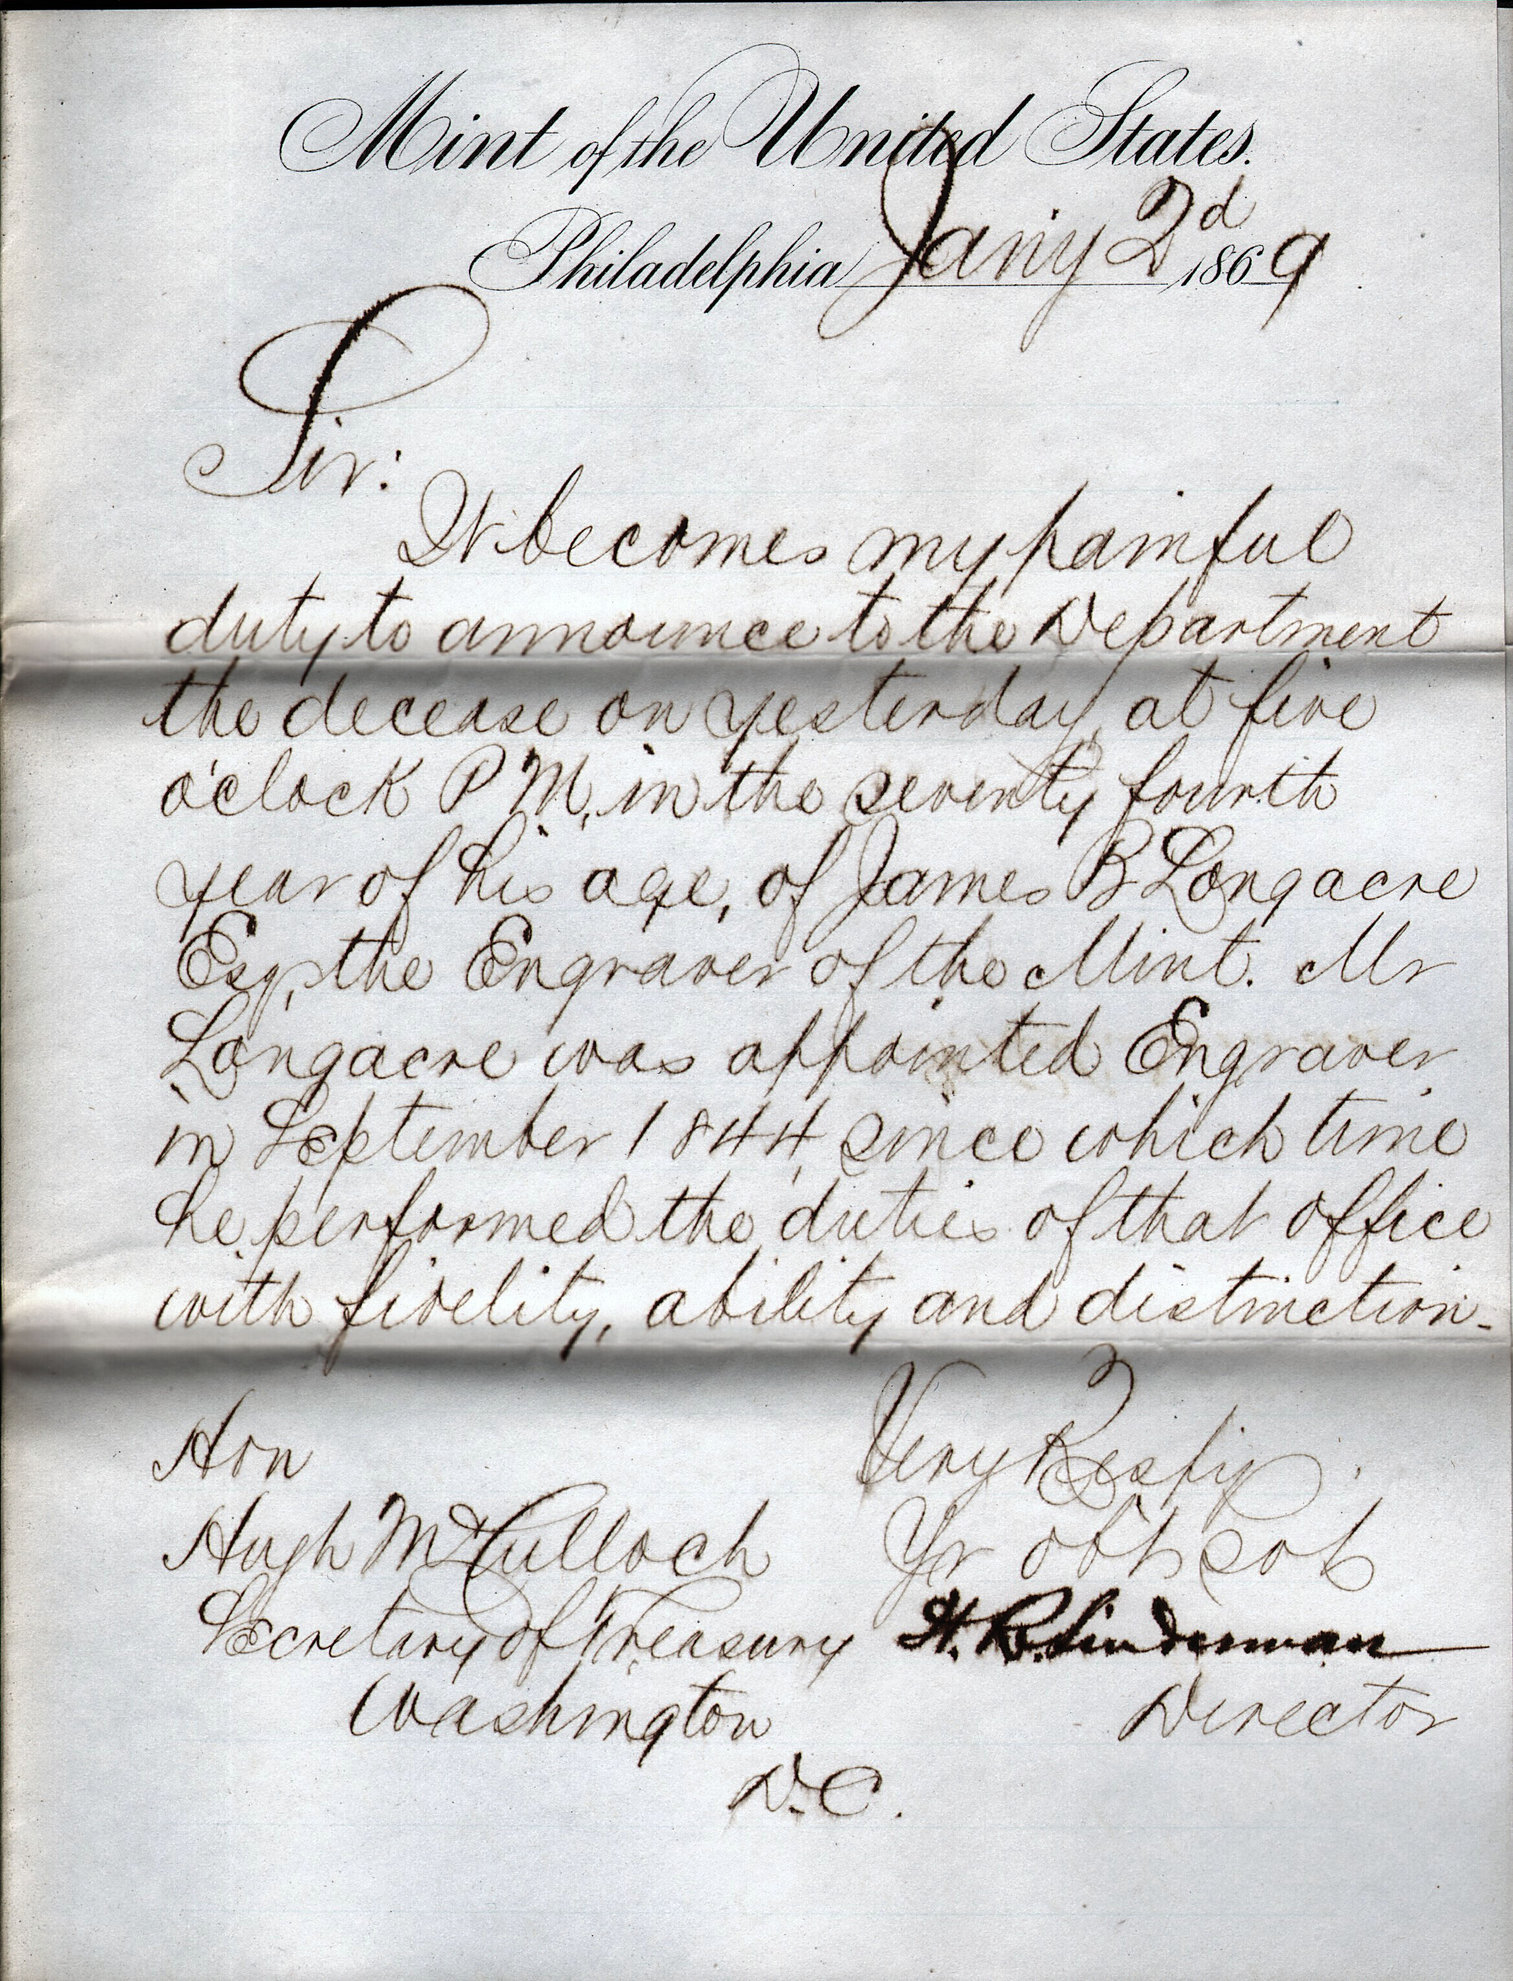 Mint of the United States.
Philadelphia Jany 2d 1869
Sir:
It becomes my painful
duty to announce to the Department
the decease on yesterday, at five
o'clock P M, in the seventy fourth
year of his age, of James B Longacre
Esq, the Engraver of the Mint. Mr
Longacre was appointed Engraver
in September 1844, since which time
he performed the duties of that office
with fidelity, ability and distinction.
Very Respy
Yr obt sert
H. R. Linderman
Director
Hon
Hugh McCulloch
Secretary of Treasury
Washington
D.C.